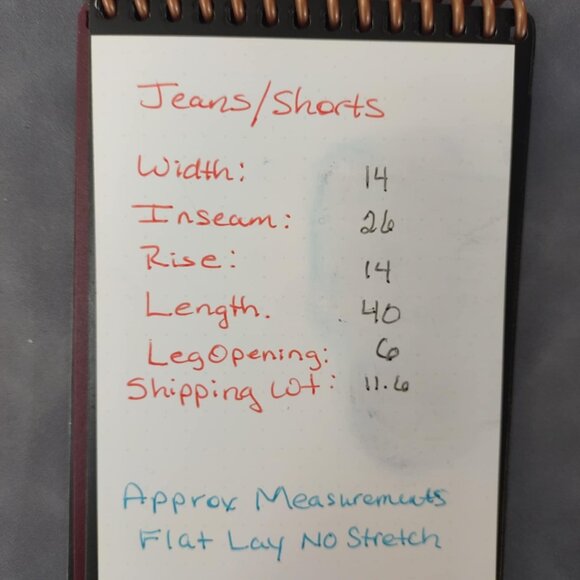 Jeans/Shorts
Width: 14
Inseam: 26
Rise: 14
Length. 40
Leg Opening: 6
Shipping Wt: 11.6
Approx Measurements
Flat Lay No Stretch